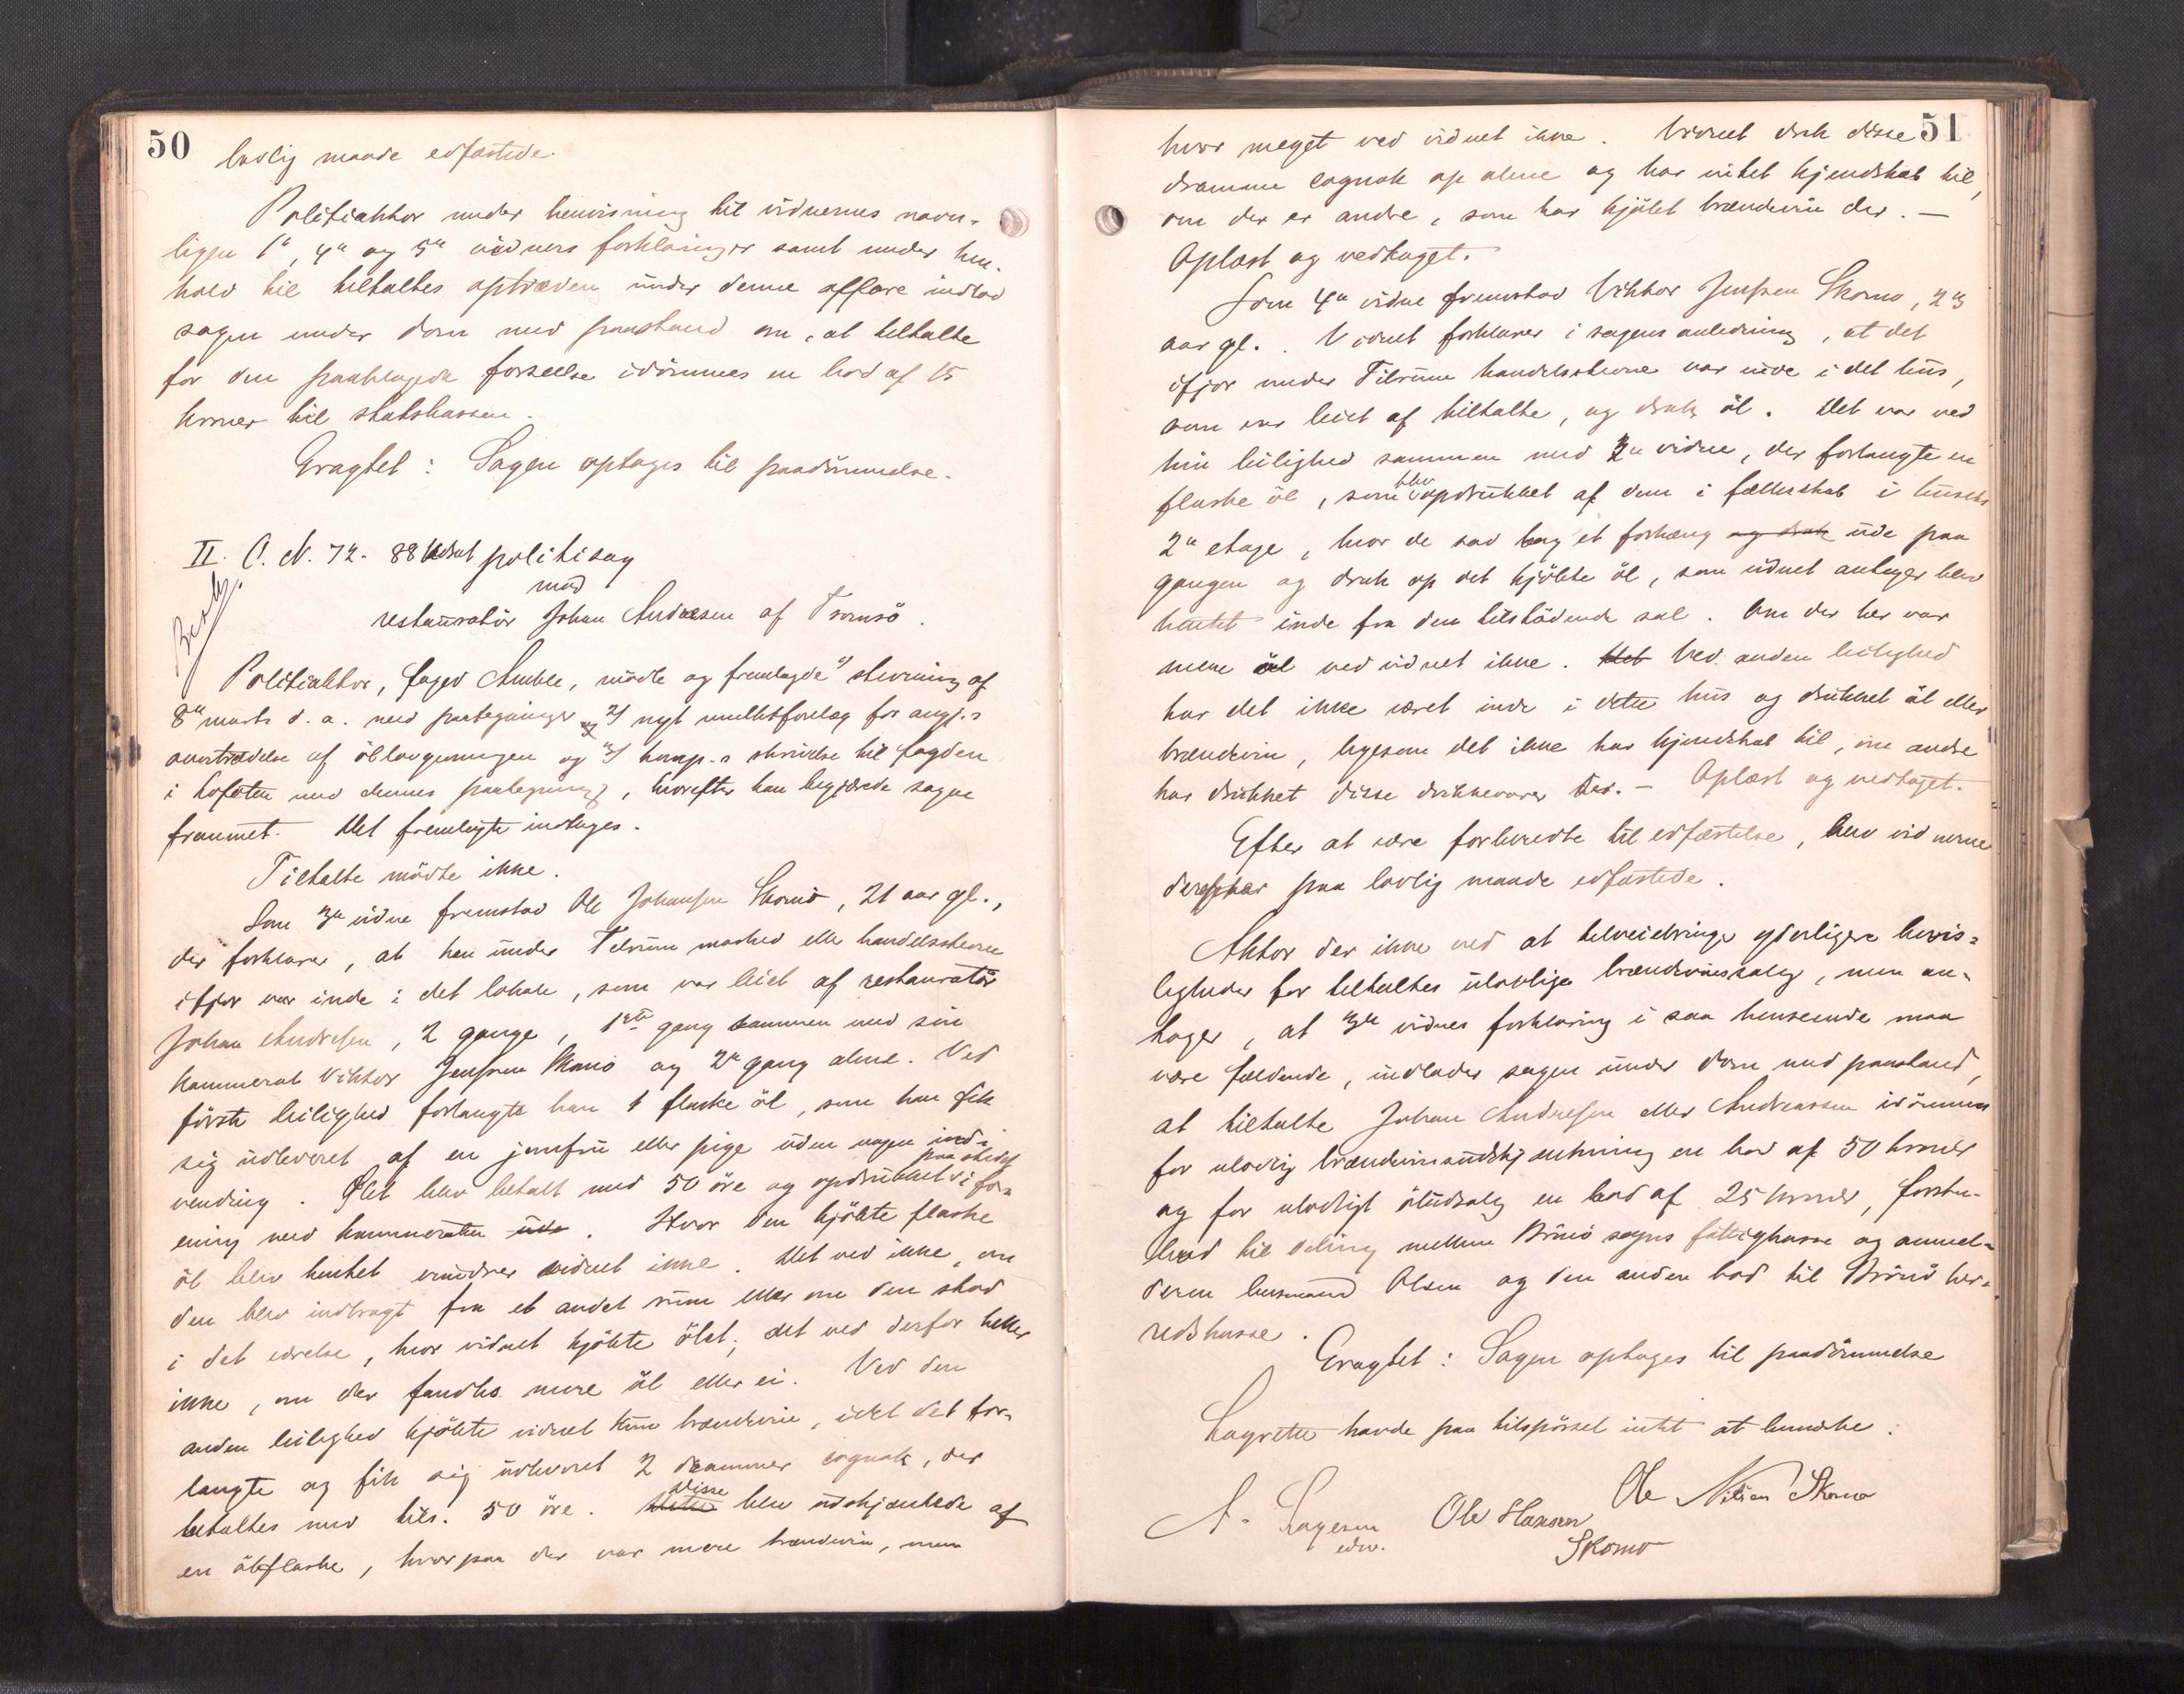 50
lovlig maade edfæstede.
Politiaktor under henvisning til vidnernes navn-
ligen 1ste, 4de og 5te vidners forklaringer samt under hen-
hold til tiltaltes optræden under denne affære indlod
sagen under dom med paastand om, at tiltalte
for den paaklagede forseelse idömmes en bod af 15
kroner til statskassen.
Eragtet: Sagen optages til paadömmelse.
II. C. N. 72. 88 politisag
mod
restauratör Johan Andresen af Tromsö.
Politiaktor, foged Amble, mödte og fremlagde 1) stevning af
8de marts d. a. med paategninger 2) nyt mulktforelæg for angj.s
overtrædelse af öllovgivningen og 3) komp.s skrivelse til fogden
i Lofoten med dennes paategning, hvorefter han begjærede sagen
fremmet. Det fremlagte indtages.
Tiltalte mödte ikke.
Som 3de vidne fremstod Ole Johansen Skomo, 21 aar gl.,
der forklarer, at han under Tilrum marked eller handelsstevne
ifjor var inde i det lokale, som var leiet af restauratör
Johan Andresen, 2 gange, 1ste gang sammen med sin
kammerat Viktor Jenssen Skomo og 2den gang alene. Ved
förste leilighed forlangte han 1 flaske öl, som han fik
sig udleveret af en jomfru eller pige uden nogen ind-
vending. Ölet blev betalt med 50 öre og opdrukket paa stedet i for-
ening med kammeraten ude. Hvor den kjöbte flaske
öl blev hentet erindrer vidnet ikke. Det ved ikke, om
den blev indbragt fra et andet rum eller om den stod
i det værelse, hvor vidnet kjöbte ölet; det ved derfor heller
ikke, om der fandtes mere öl eller ei. Ved den
anden leilighed kjöbte vidnet kun brændevin, idet det for-
langte og fik sig udleveret 2 drammer cognak, der
betaltes med tils. 50 öre. Disse blev udskjænkede af
en ölflaske, hvorpaa der var mere brændevin, men
51
hvor meget ved vidnet ikke. Vidnet drak disse
dramme cognak op alene og har intet kjendskab til,
om der er andre, som har kjöbt brændevin der. —
Oplæst og vedtaget.
Som 4de vidne fremstod Viktor Jenssen Skomo, 23
aar gl.. Vidnet forklarer i sagens anledning, at det
ifjor under Tilrum handelsstevne var inde i det hus,
som var leiet af tiltalte, og drak öl. Det var ved
hin leilighed sammen med 3de vidne, der forlangte en
flaske öl, som blev opdrukket af dem i fællesskab i husets
2den etage, hvor de sad bag et forhæng og drak ude paa
gangen og drak op det kjöbte öl, som vidnet antager blev
hentet inde fra den tilstödende sal. Om der her var
mere öl ved vidnet ikke. Det Ved anden leilighed
har det ikke været inde i dette hus og drukket öl eller
brændevin, ligesom det ikke har kjendskab til, om andre
har drukket disse drikkevarer der. — Oplæst og vedtaget.
Efter at være forberedte til edfæstelse, blev vidnerne
derefter paa lovlig maade edfæstede.
Aktor der ikke ved at tilveiebringe yderligere bevis-
ligheder for tiltaltes ulovlige brændevinssalg, men an-
tager, at 3de vidnes forklaring i saa henseende maa
være fældende, indlader sagen under dom med paastand,
at tiltalte Johan Andresen eller Andreassen idömmes
for ulovlig brændevinsudskjænkning en bod af 50 kroner
og for ulovligt öludsalg en bod af 25 kroner, förste
bod til deling mellem Brönö sogns fattigkasse og anmel-
deren lensmand Olsen og den anden bod til Brönö her-
redskasse.
Eragtet: Sagen optages til paadömmelse
Lagrettet havde paa tilspörsel intet at bemærke.
Ole Nilsen Skomo
A. Lagesen Ole Hansen
edw. Skomo